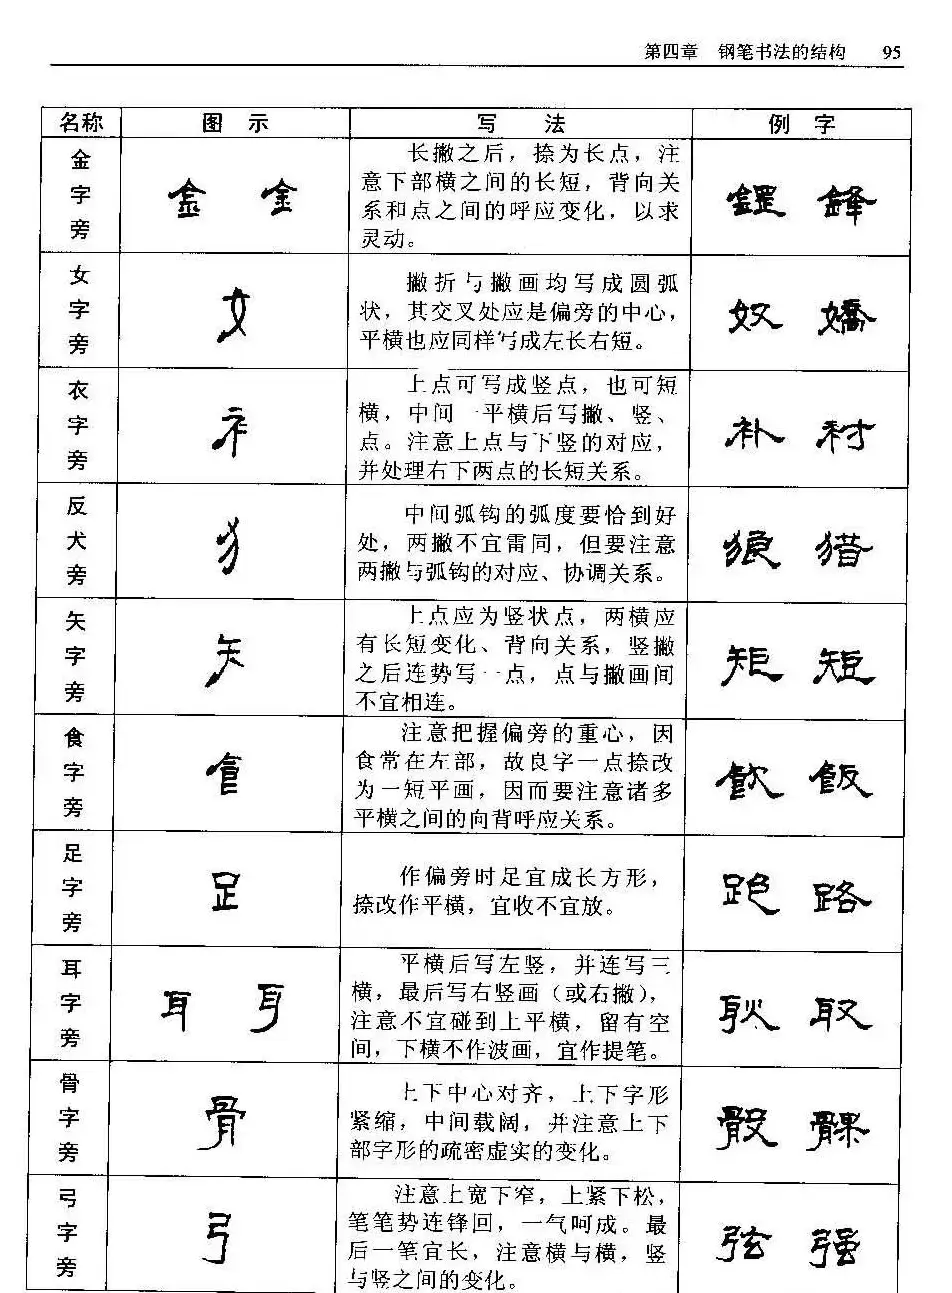 第四章 钢笔书法的结构 95
名称 图示 写法 例字
金字旁
金 金
长撇之后，捺为长点，注
意下部横之间的长短，背向关
系和点之间的呼应变化，以求
灵动。
鋒
女字旁
女
撇折与撇画均写成圆弧
状，其交叉处应是偏旁的中心，
平横也应同样写成左长右短。
奴 嬌
衣字旁
衤
上点可写成竖点，也可短
横，中间一平横后写撇、竖、
点。注意上点与下竖的对应，
并处理右下两点的长短关系。
补 衬
反犬旁
犭
中间弧钩的弧度要恰到好
处，两撇不宜雷同，但要注意
两撇与弧钩的对应、协调关系。
狼 猎
矢字旁
矢
上点应为竖状点，两横应
有长短变化、背向关系，竖撇
之后连势写一点，点与撇画间
不宜相连。
矩 短
食字旁
飠
注意把握偏旁的重心，因
食常在左部，故良字一点捺改
为一短平画，因而要注意诸多
平横之间的向背呼应关系。
飲 飯
足字旁
足
作偏旁时足宜成长方形，
捺改作平横，宜收不宜放。
跑 路
耳字旁
耳 耳
平横后写左竖，并连写三
横，最后写右竖画（或右撇），
注意不宜碰到上平横，留有空
间，下横不作波画，宜作提笔。
耿 取
骨字旁
骨
上下中心对齐，上下字形
紧缩，中间载阔，并注意上下
部字形的疏密虚实的变化。
骰 髁
弓字旁
弓
注意上宽下窄，上紧下松，
笔笔势连锋回，一气呵成。最
后一笔宜长，注意横与横，竖
与竖之间的变化。
弦 强